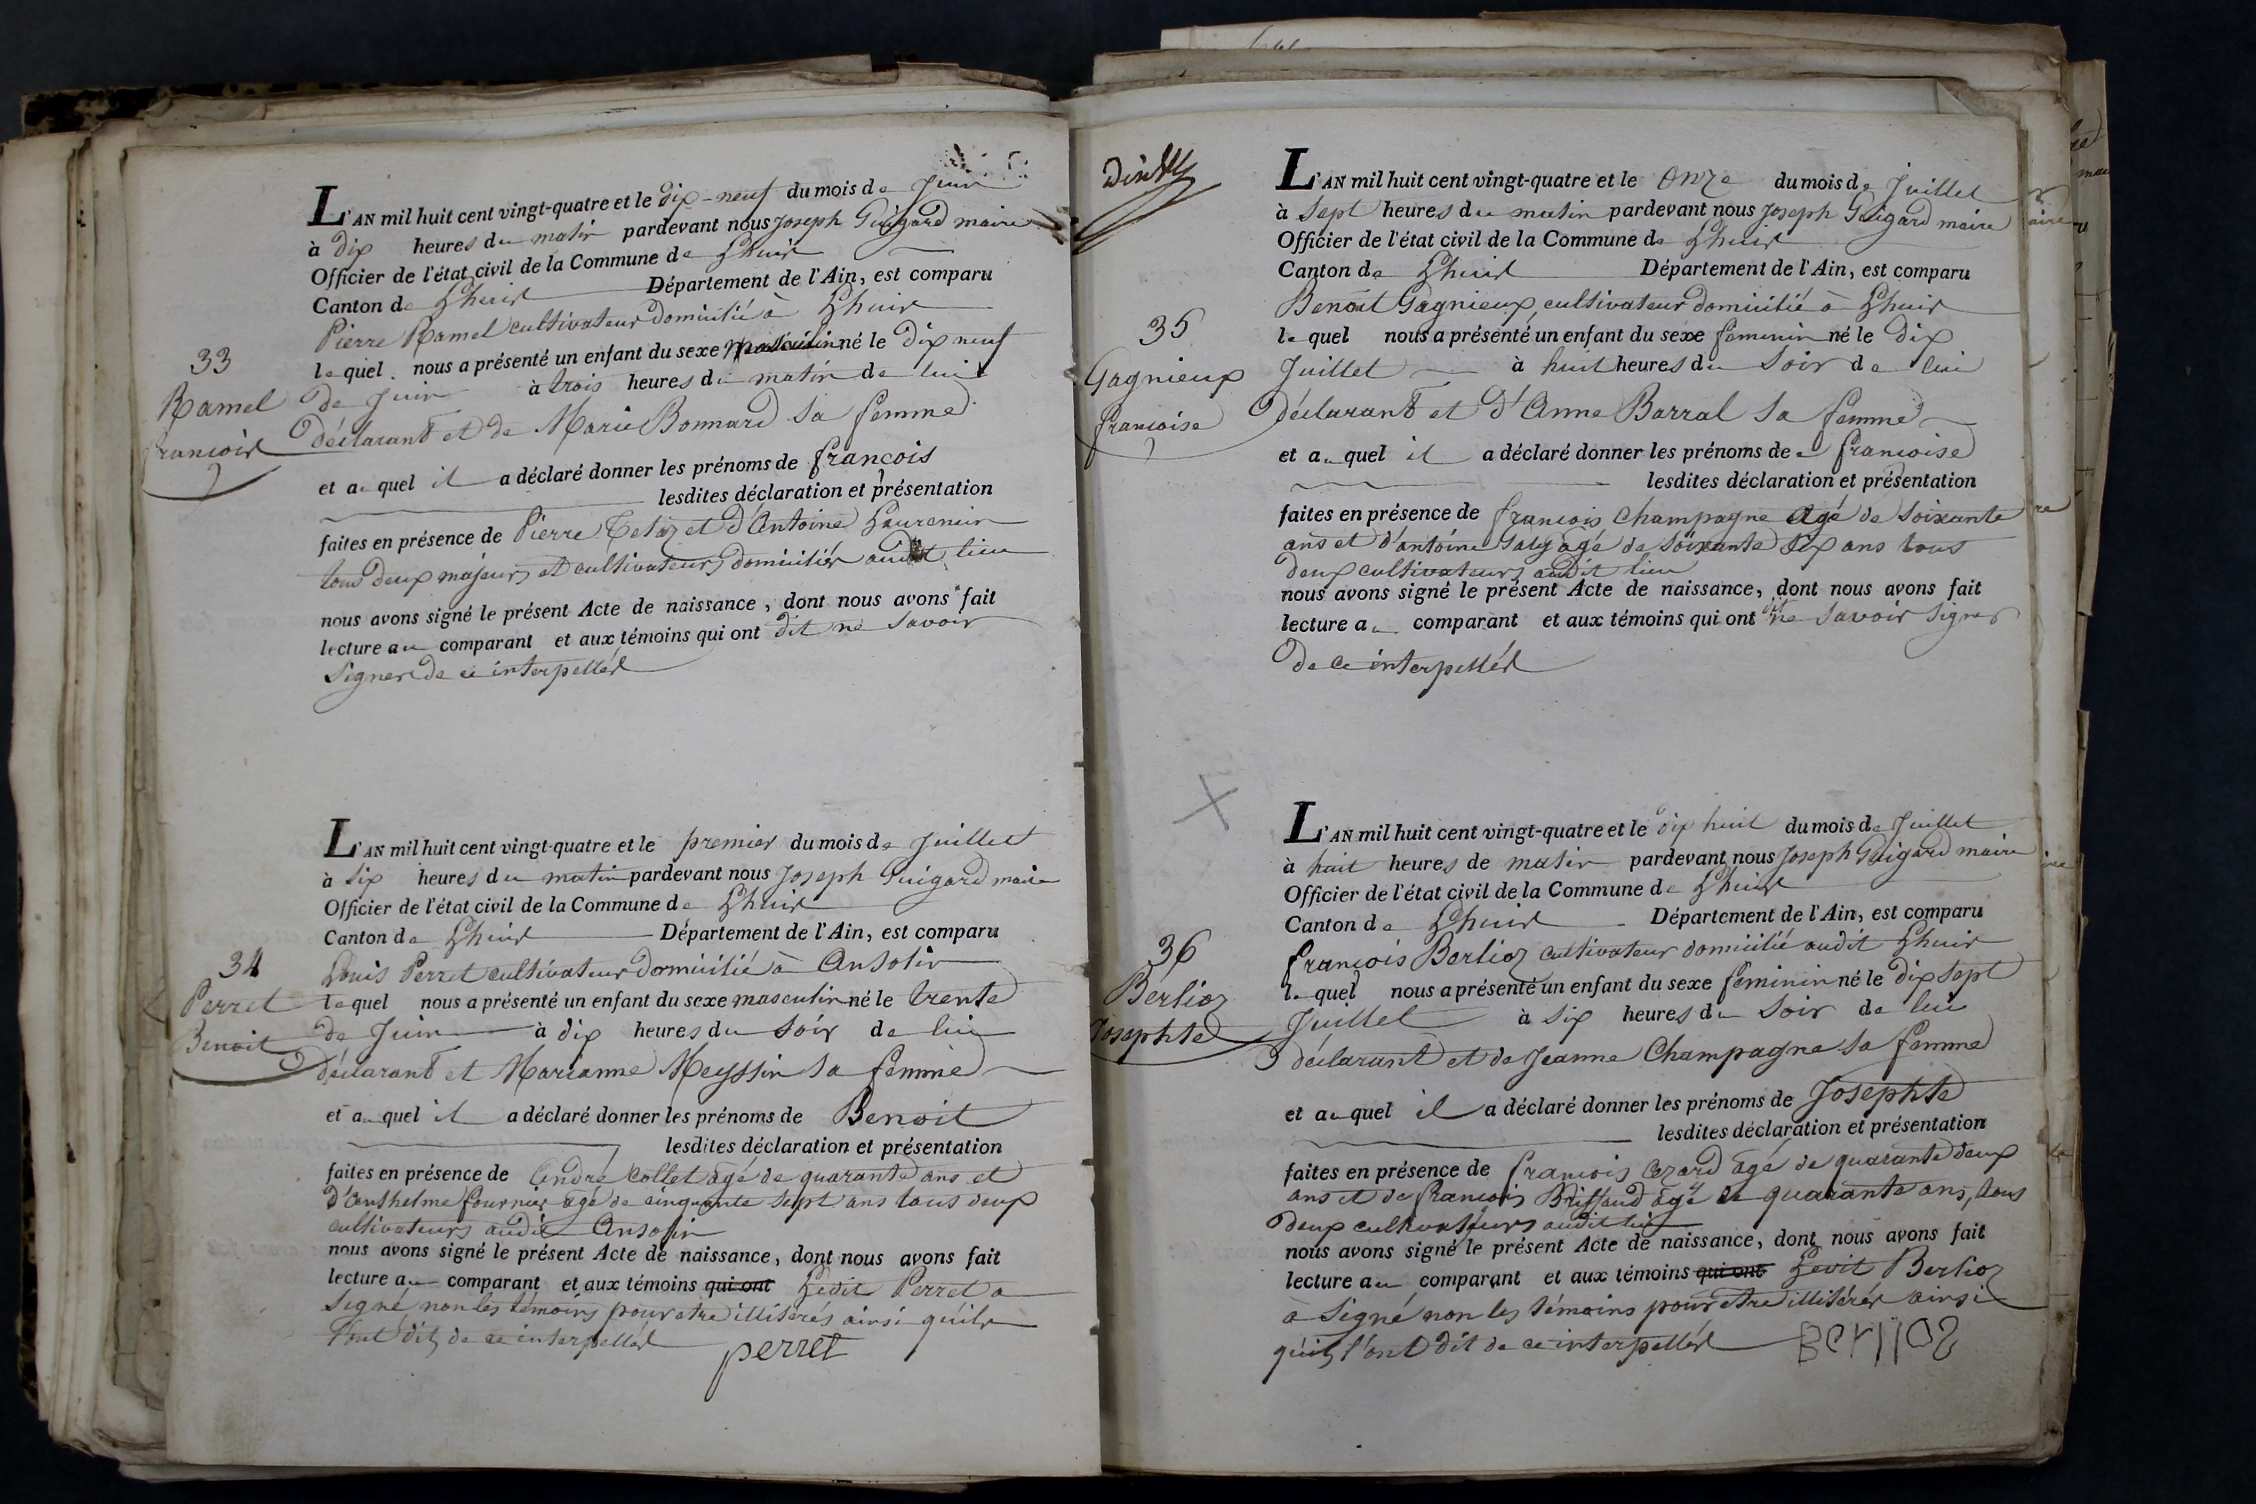 33
Ramel
françois
L'AN mil huit cent vingt-quatre et le dix-neuf du mois de Juin
à dix heures du matin pardevant nous Joseph Guigard maire
Officier de l'état civil de la Commune de Lhuis
Canton de Lhuis Département de l'Ain, est comparu
Pierre Ramel cultivateur domicilié à Lhuis
lequel nous a présenté un enfant du sexe masculin né le dix neuf
de Juin à trois heures du matin de lui
déclarant et de Marie Bonnard sa femme
et auquel il a déclaré donner les prénoms de françois
lesdites déclaration et présentation
faites en présence de Pierre et d'Antoine Laurencin
tous deux majeurs et cultivateurs domiciliés audit lieu
nous avons signé le présent Acte de naissance, dont nous avons fait
lecture au comparant et aux témoins qui ont dit ne savoir
signer de ce interpellés
34
Perret
Benoit
L'AN mil huit cent vingt-quatre et le premier du mois de Juillet
à six heures du matin pardevant nous Joseph Guigard maire
Officier de l'état civil de la Commune de Lhuis
Canton de Lhuis Département de l'Ain, est comparu
Louis Perret cultivateur domicilié à Ansolin
lequel nous a présenté un enfant du sexe masculin né le trente
de Juin à dix heures du soir de lui
déclarant et Marianne Meyssin sa femme
et auquel il a déclaré donner les prénoms de Benoit
lesdites déclaration et présentation
faites en présence de André Collet agé de quarante ans et
d'Anthelme fournier agé de cinquante sept ans tous deux
cultivateurs audit Ansolin
nous avons signé le présent Acte de naissance, dont nous avons fait
lecture au comparant et aux témoins qui ont Ledit Perret a
signé non les témoins pour etre illitérés ainsi qu'ils
l'ont dit de ce interpellés
perret
35
Gagnieux
françoise
L'AN mil huit cent vingt-quatre et le onze du mois de Juillet
à sept heures du matin pardevant nous Joseph Guigard maire
Officier de l'état civil de la Commune de Lhuis
Canton de Lhuis Département de l'Ain, est comparu
Benoit Gagnieux, cultivateur domicilié à Lhuis
lequel nous a présenté un enfant du sexe femenin né le dix
Juillet à huit heures du soir de lui
déclarant et d'Anne Barral sa femme
et auquel il a déclaré donner les prénoms de françoise
lesdites déclaration et présentation
faites en présence de françois Champagne agé de soixante
ans et d'antoine agé de soixante dix ans tous
deux cultivateurs audit lieu
nous avons signé le présent Acte de naissance, dont nous avons fait
lecture au comparant et aux témoins qui ont dit ne savoir signer
de ce interpellés
36
Berlioz
Josephte
L'AN mil huit cent vingt-quatre et le dix huit du mois de Juillet
à huit heures de matin pardevant nous Joseph Guigard maire
Officier de l'état civil de la Commune de Lhuis
Canton de Lhuis Département de l'Ain, est comparu
françois Berlioz cultivateur domicilié audit Lhuis
lequel nous a présenté un enfant du sexe féminin né le dix sept
Juillet à six heures du soir de lui
déclarant et de Jeanne Champagne sa femme
et auquel il a déclaré donner les prénoms de Josephte
lesdites déclaration et présentation
faites en présence de françois Cezard agé de quarante deux
ans et de françois Briffaud agé de quarante ans, tous
deux cultivateurs audit lieu
nous avons signé le présent Acte de naissance, dont nous avons fait
lecture au comparant et aux témoins qui ont Ledit Berlioz
a signé non les témoins pour etre illitérés ainsi
qu'ils l'ont dit de ce interpellés
Berlioz